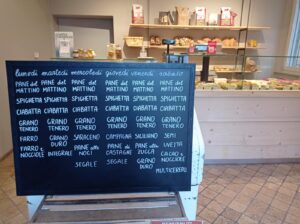 lunedì martedì mercoledì giovedì venerdì sabato
PANE del MATTINO PANE del MATTINO PANE del MATTINO PANE del MATTINO PANE del MATTINO PANE del MATTINO
SPIGHETTA SPIGHETTA SPIGHETTA SPIGHETTA SPIGHETTA SPIGHETTA
CIABATTA CIABATTA CIABATTA CIABATTA CIABATTA CIABATTA
GRANO TENERO GRANO TENERO GRANO TENERO GRANO TENERO GRANO TENERO GRANO TENERO
FARRO GRANO DURO SARACENO CAMPAGNA SICILIANO SEMI
FARRO e NOCCIOLE INTEGRALE PANE alle NOCI PANE di CASTAGNE PANE alla ZUCCA UVETTA
SEGALE SEGALE GRANO DURO CACAO e NOCCIOLE
MULTICEREALI